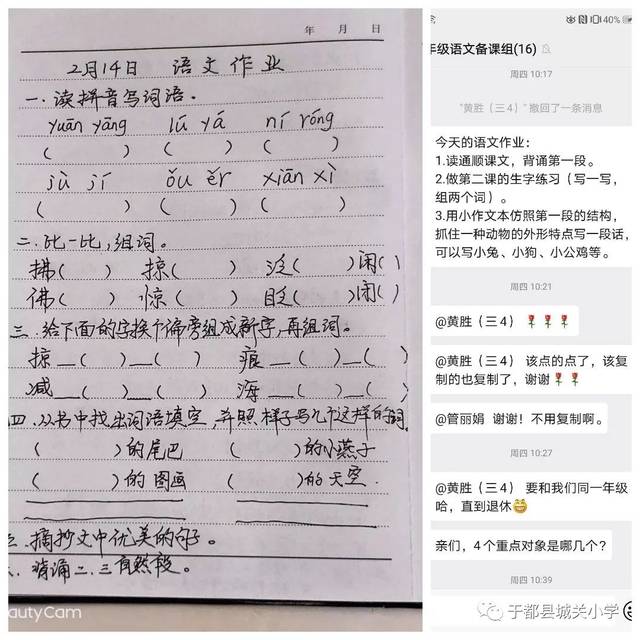 年 月 日
2月14日 语文作业
一.读拼音写词语.
yuān yāng lú yá ní róng
( ) ( ) ( )
jù jí ǒu ěr xiān xì
( ) ( ) ( )
二.比一比,组词。
拂( ) 掠( ) 泛( ) 闲( )
佛( ) 惊( ) 眨( ) 闭( )
三.给下面的字换个偏旁组成新字,再组词。
掠__( )__( ) 痕__( )__( )
减__( )__( ) 海__( )__( )
四.从书中找出词语填空,并照样子写几个这样的词
( )的尾巴 ( )的小燕子
( )的图画 ( )的天空.
、摘抄文中优美的句子。
、背诵二、三自然段。
autyCam
40%
年级语文备课组(16)
周四 10:17
"黄胜（三4）" 撤回了一条消息
今天的语文作业：
1.读通顺课文，背诵第一段。
2.做第二课的生字练习（写一写，
组两个词）。
3.用小作文本仿照第一段的结构，
抓住一种动物的外形特点写一段话，
可以写小兔、小狗、小公鸡等。
周四 10:21
@黄胜（三4）
@黄胜（三4） 该点的点了，该复
制的也复制了，谢谢
@管丽娟 谢谢！不用复制啊。
周四 10:27
@黄胜（三4） 要和我们同一年级
哈，直到退休
亲们，4个重点对象是哪几个？
周四 10:39
于都县城关小学